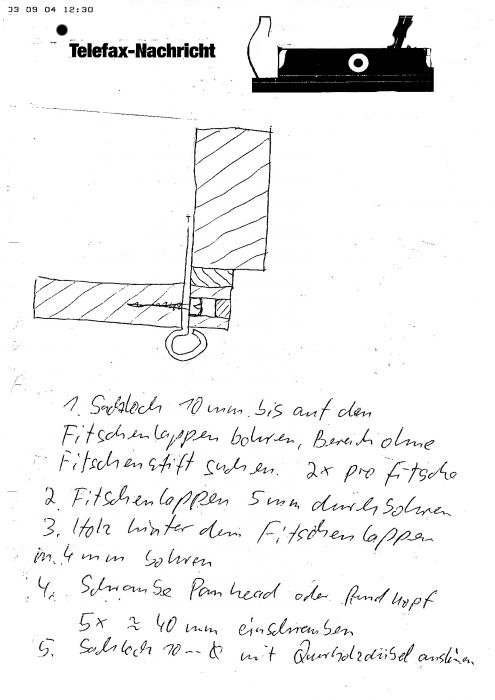 03 09 04 12:30
Telefax-Nachricht
1. Sackloch 10 mm bis auf den
Fitschenlappen bohren, Bereich ohne
Fitschenstift suchen. 2x pro Fitsche
2. Fitschenlappen 5 mm durchbohren
3. Holz hinter dem Fitschenlappen
in 4 mm bohren
4. Schraube Panhead oder Rundkopf
5x ≈ 40 mm einschrauben
5. Sackloch 10 mit Querholzdübel